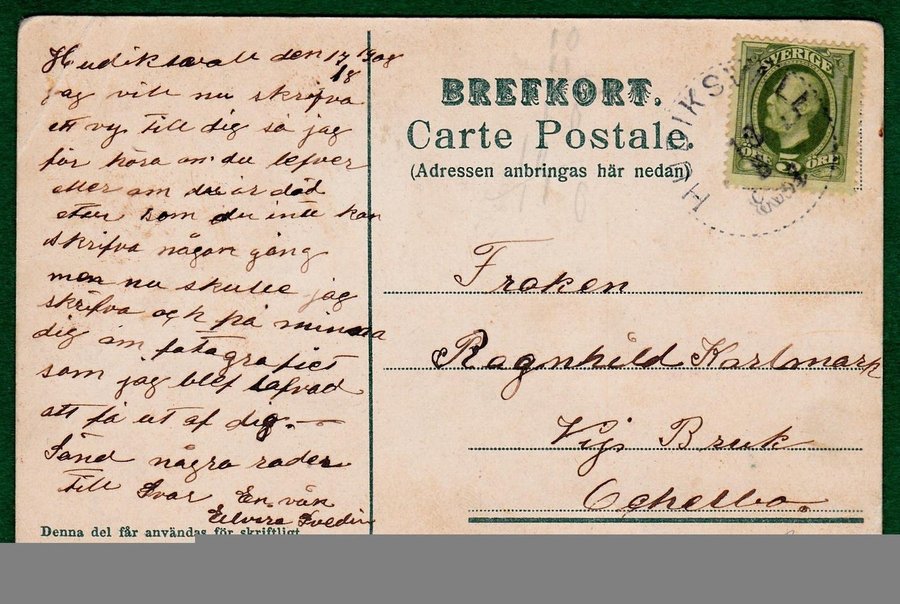 Hudiksvall den 17/18 1908
jag vill nu skrifva
ett vy till dig så jag
får höra om du lefver
eller om du är död
efter som du inte kan
skrifva någon gång
men nu skulle jag
skrifva och på minna
dig om fotografiet
som jag blef lofvad
att få ut af dig. —
Sänd några rader
till Svar
En vän
Elvira Svedin
Denna del får användas för skriftligt
BREFKORT.
Carte Postale.
(Adressen anbringas här nedan)
SVERIGE
5 ÖRE
Fröken
Ragnhild Karlmark
Bruk
Ockelbo.